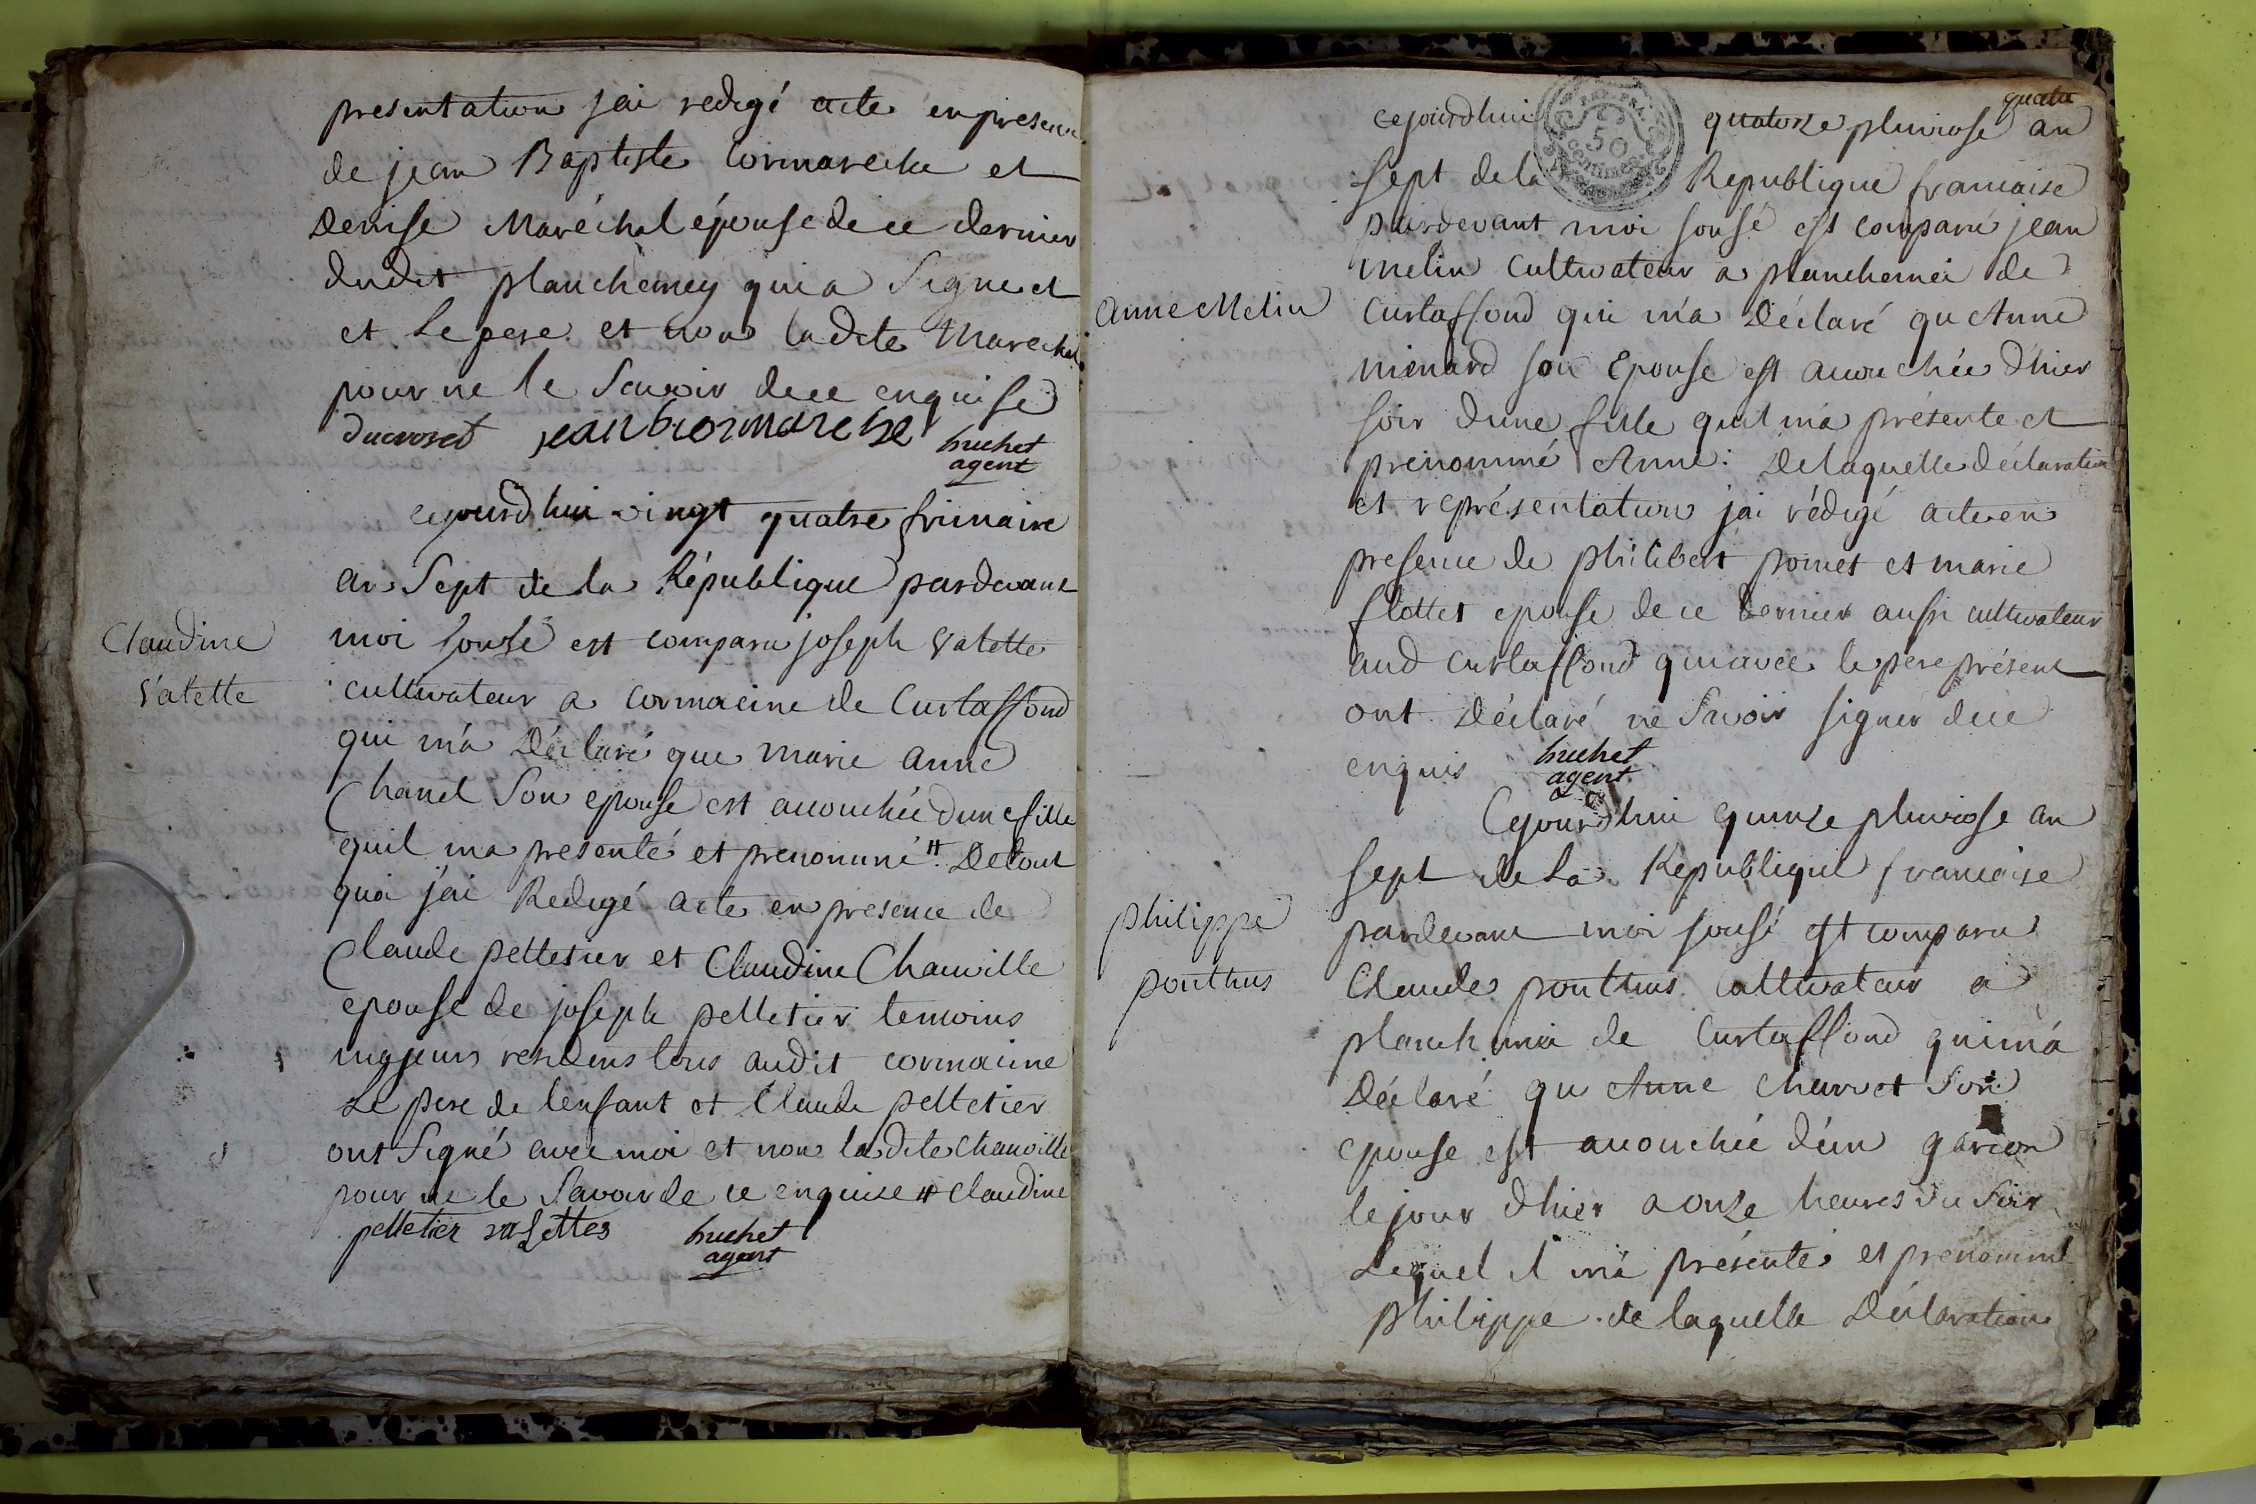 presentation jai redigé acte en presence
de jean Baptiste Cormareche et
Denise Maréchal épouse de ce dernier
dudit planchemey qui a Signe et
et Le pere et non ladite Marechal
pour ne le Savoir de ce enquise
ducroset jean b cormareche
buchet
agent
cejourdhui vingt quatre frimaire
an Sept de la République pardevant
moi sousé est comparu joseph Valette
Claudine
Valette
cultivateur a cormacine de Curtaffond
qui m'a Déclaré que marie anne
Chanel Son epouse est accouchée dune fille
quil ma presenté et prenommé # De tout
quoi j'ai Redigé acte en presence de
Claude pelletier et Claudine Chauville
epouse de joseph pelletier temoins
majeurs residens tous audit cormacine
Le pere de lenfant et Claude pelletier
ont Signé avec moi et non ladite Chauville
pour ne le Savoir de ce enquise # Claudine
pelletier valettes
buchet
agent
quatre
cejourdhui quatorze pluviose an
Sept de la Republique francaise
REP. FRA.
50
CENTIMES
pardevant moi sousé est comparu jean
melin cultivateur a planchemei de
anne Melin
Curtaffond qui m'a Déclaré qu Anne
mienard son Epouse est accouchée d'hier
soir dune fille quil m'a présenté et
prenommé Anne : De laquelle déclaration
et représentation j'ai rédigé acte en
presence de philibert pomet et marie
flottet epouse de ce dernier aussi cultivateur
aud curtaffond qui avec le pere présent
ont Déclaré ne Savoir signer de ce
enquis
buchet
agent
Cejourdhui quinze pluviose an
sept de la Republique francaise
philippe
ponthus
pardevant moi sousé est comparu
Claude ponthus cultivateur a
planchimei de Curtaffond qui m'a
Déclaré qu Anne charvet Son
epouse est accouchée d'un garcon
le jour dhier a onze heures du Soir
Lequel il m'a présenté et prénommé
philippe . de laquelle Déclaration